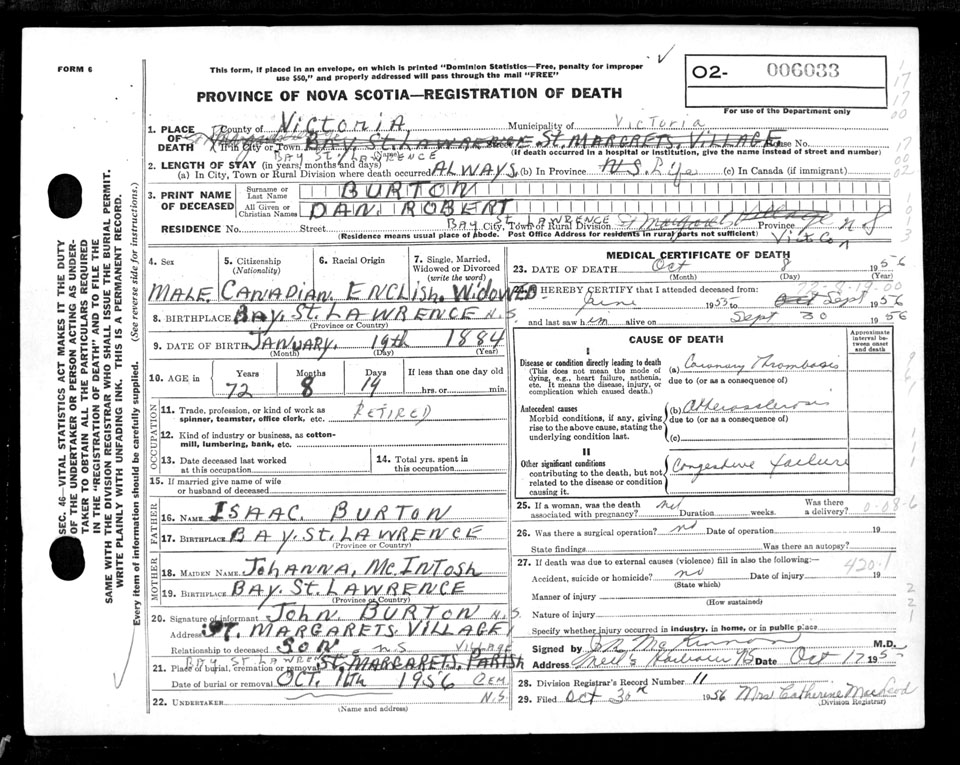 FORM 6
This form, if placed in an envelope, on which is printed "Dominion Statistics—Free, penalty for improper
use $50," and properly addressed will pass through the mail "FREE"
O2- 006033
For use of the Department only
PROVINCE OF NOVA SCOTIA—REGISTRATION OF DEATH
1. PLACE OF DEATH
County of VICTORIA Municipality of VICTORIA
If in City or Town BAY. ST. LAWRENCE ST. MARGRETS. VILLAGE House No.
(If death occurred in a hospital or institution, give the name instead of street and number)
BAY ST. LAWRENCE
2. LENGTH OF STAY (in years, months and days)
(a) In City, Town or Rural Division where death occurred ALWAYS. (b) In Province N S. Life (c) In Canada (if immigrant)
3. PRINT NAME OF DECEASED
Surname or Last Name BURTON
All Given or Christian Names DAN. ROBERT
RESIDENCE No. Street BAY ST. LAWRENCE City, Town or Rural Division St Margaret Village Province N S
(Residence means usual place of abode. Post Office Address for residents in rural parts not sufficient) Vict Con
4. Sex
5. Citizenship (Nationality)
6. Racial Origin
7. Single, Married, Widowed or Divorced (write the word)
MALE. CANADIAN. ENGLISH. WIDOWED
8. BIRTHPLACE BAY. ST. LAWRENCE N.S.
(Province or Country)
9. DATE OF BIRTH JANUARY. 19th 1884
(Month) (Day) (Year)
10. AGE in Years Months Days If less than one day old
72 8 19 hrs. or min.
OCCUPATION
11. Trade, profession, or kind of work as spinner, teamster, office clerk, etc. RETIRED
12. Kind of industry or business, as cotton-mill, lumbering, bank, etc.
13. Date deceased last worked at this occupation
14. Total yrs. spent in this occupation
15. If married give name of wife or husband of deceased
FATHER
16. NAME ISAAC. BURTON
17. BIRTHPLACE BAY. ST. LAWRENCE
(Province or Country)
MOTHER
18. MAIDEN NAME JOHANNA, Mc. INTOSH
19. BIRTHPLACE BAY. ST. LAWRENCE
(Province or Country)
20. Signature of informant JOHN BURTON N.S.
Address ST. MARGARETS. VILLAGE
Relationship to deceased SON. N.S. VILLAGE
BAY ST. LAWRENCE
21. Place of burial, cremation or removal ST. MARGARETS. PARISH
Date of burial or removal OCT. 11th 1956 CEM.
22. UNDERTAKER N.S.
(Name and address)
MEDICAL CERTIFICATE OF DEATH
23. DATE OF DEATH Oct 8 1956
(Month) (Day) (Year)
I HEREBY CERTIFY that I attended deceased from:
June 1955 to Sept 1956
and last saw him alive on Sept 30 1956
CAUSE OF DEATH
Approximate interval between onset and death
I
Disease or condition directly leading to death (a) Coronary Thrombosis
(This does not mean the mode of dying, e.g., heart failure, asthenia, etc. It means the disease, injury, or complication which caused death.)
due to (or as a consequence of)
Antecedent causes
Morbid conditions, if any, giving rise to the above cause, stating the underlying condition last.
(b) Atherosclerosis
due to (or as a consequence of)
(c)
II
Other significant conditions
contributing to the death, but not related to the disease or condition causing it.
Congestive failure
25. If a woman, was the death associated with pregnancy? Duration weeks. Was there a delivery?
26. Was there a surgical operation? no Date of operation 19
State findings Was there an autopsy?
27. If death was due to external causes (violence) fill in also the following: 420.1
Accident, suicide or homicide? no Date of injury 19
(State which)
Manner of injury
(How sustained)
Nature of injury
Specify whether injury occurred in industry, in home, or in public place
Signed by M.D.
Address Neil's Harbour NS Date Oct 17 195
28. Division Registrar's Record Number 11
29. Filed Oct 30th 1956 Mrs Catherine MacLeod
(Division Registrar)
SEC. 46—VITAL STATISTICS ACT MAKES IT THE DUTY
OF THE UNDERTAKER OR PERSON ACTING AS UNDER-
TAKER TO OBTAIN ALL THE PARTICULARS REQUIRED
IN THE "REGISTRATION OF DEATH" AND TO FILE THE
SAME WITH THE DIVISION REGISTRAR WHO SHALL ISSUE THE BURIAL PERMIT.
WRITE PLAINLY WITH UNFADING INK. THIS IS A PERMANENT RECORD.
Every item of information should be carefully supplied. (See reverse side for instructions.)